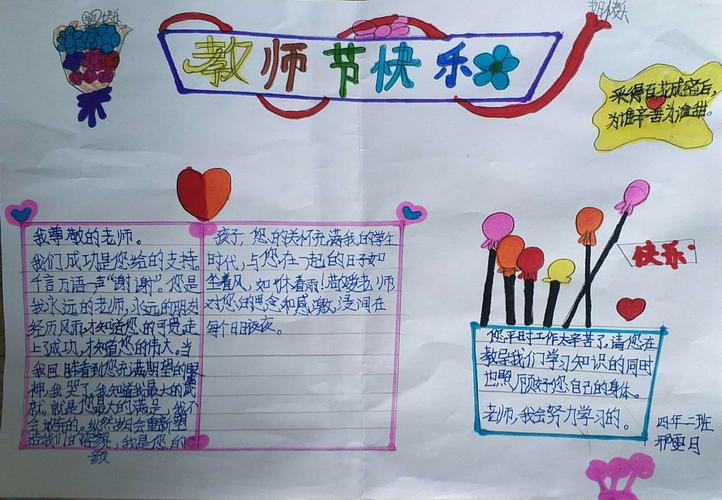 节日快乐
教师节快乐
采得百花成蜜后，
为谁辛苦为谁甜。
我尊敬的老师。
我们成功是您给的支持。
千言万语一声“谢谢”，您是
我永远的老师，永远的朋友
经历风雨，才知道您的可贵，走
上了成功，才知道您的伟大。当
我回眸看到您充满期望的眼
神，我哭了，我知道我最大的成
就，就是您最大的满足，我不
会
给我们的 我是您的
孩子，您的关怀充满我的学生
时代，与您在一起的日子如
坐春风，如沐春雨！当
对您的思念和感激，浸润在
每个日日夜夜。
快乐
您平时工作太辛苦了，请您在
教导我们学习知识的同时
也照顾好您自己的身体。
老师，我会努力学习的。
四年二班
月